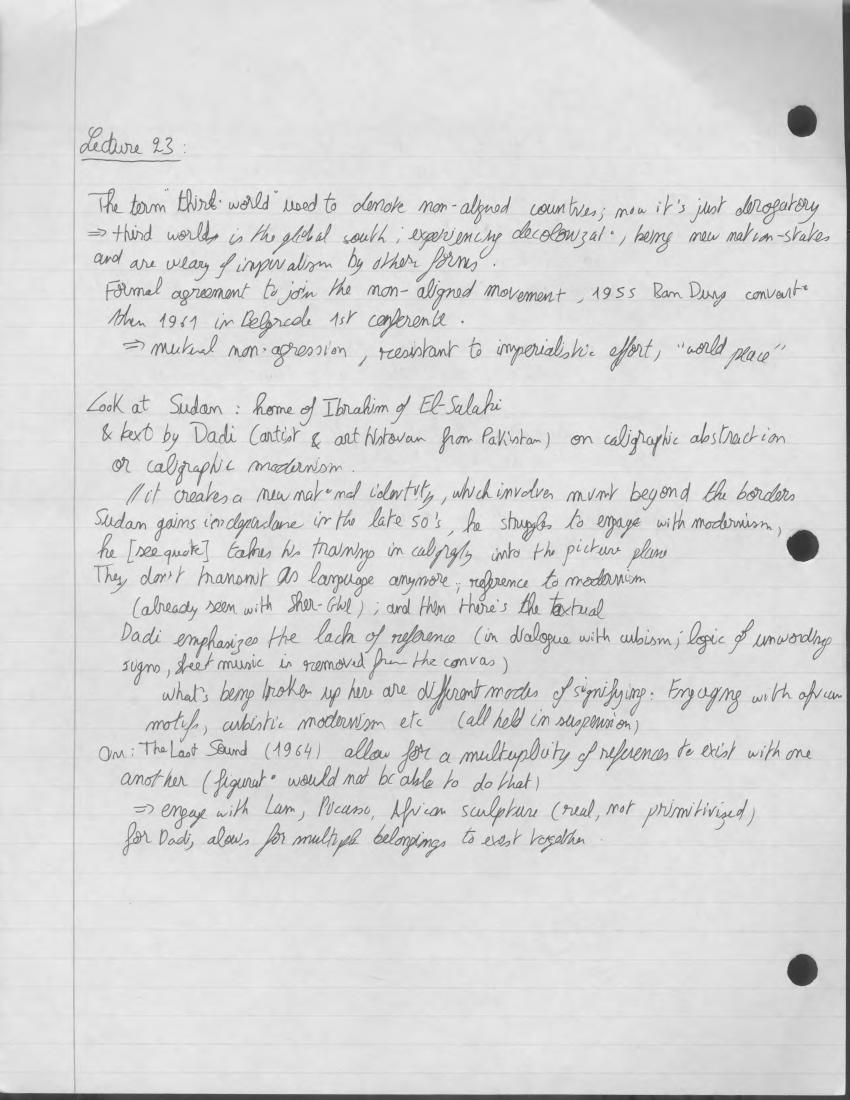 Lecture 23 :
The term "third-world" used to denote non-aligned countries; now it's just derogatory
⇒ third worlds is the global south ; experiencing decolonizat°, being new nation-states
and are weary of imperialism by other forms.
Formal agreement to join the non-aligned movement, 1955 Ban Dung
then 1961 in Belgrade 1st conference.
⇒ mutual non-agression, resistant to imperialistic effort, "world peace"
Look at Sudan : home of Ibrahim of El-Salahi
& text by Dadi (artist & art historian from Pakistan) on caligraphic abstraction
or caligraphic modernism.
// it creates a new nat°nal identity, which involves mvmt beyond the borders
Sudan gains independane in the late 50's, he struggles to engage with modernism,
he [see quote] takes his training in caligraphy into the picture plane
They don't transmit as language anymore ; reference to modernism
(already seen with Sher-Gil) ; and then there's the textual
Dadi emphasizes the lack of reference (in dialogue with cubism ; logic of unwording
signs, sheet music is removed from the canvas)
what's being broken up here are different modes of signifying. Engaging with african
motifs, cubistic modernism etc (all held in suspension)
On : The Last Sound (1964) allow for a multuplicity of references to exist with one
another (figurat° would not be able to do that)
⇒ engage with Lam, Picasso, African sculpture (real, not primitivized)
for Dadi, alows for multiple belongings to exist together.